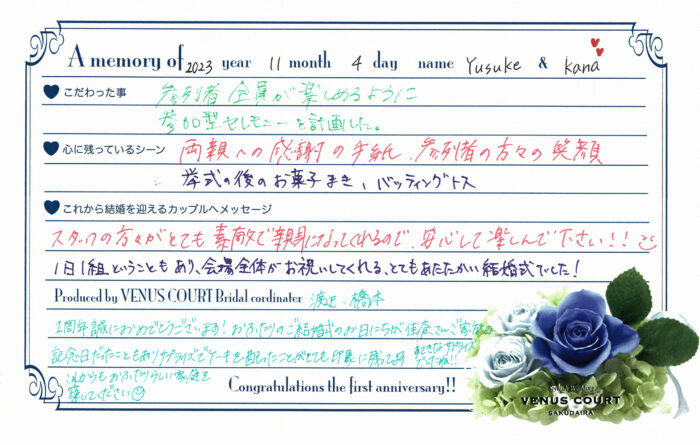 A memory of 2023 year 11 month 4 day name Yusuke & Kana
こだわった事
参列者全員が楽しめるように
参加型セレモニーを計画した。
心に残っているシーン 両親への感謝の手紙、参列者の方々の笑顔
挙式の後のお菓子まき、バッティングトス
これから結婚を迎えるカップルへメッセージ
スタッフの方々がとても素敵で親身になってくれるので、安心して楽しんで下さい!!
1日1組ということもあり、会場全体がお祝いしてくれる、とてもあたたかい結婚式でした!
Produced by VENUS COURT Bridal cordinater 渡辺・橋本
1周年誠におめでとうございます!おふたりのご結婚式のお日にちが佳奈さんご家族の
記念日だったこともありサプライズでケーキを
ことがとても印象に残ってます
すてきなサプライズ
でしたね!!
これからもおふたりらしい家庭を
築いてください
Congratulations the first anniversary!!
VENUS COURT
SAKUDAIRA